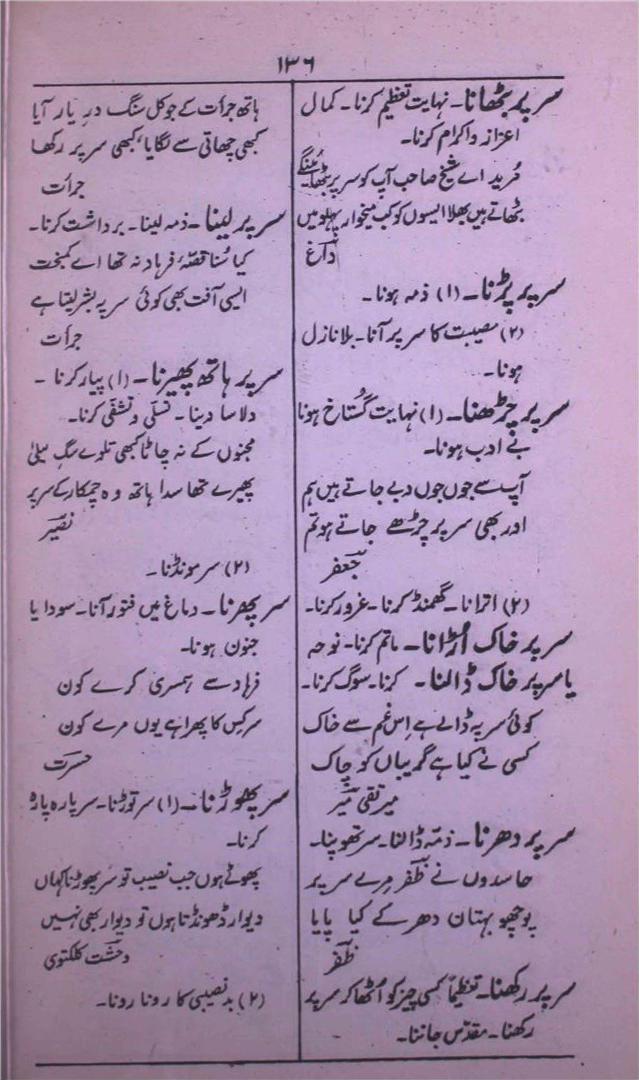 ۱۳۶
سر پر بٹھانا۔ نہایت تعظیم کرنا۔ کمال
اعزاز و اکرام کرنا۔
مرید اے شیخ صاحب آپ کو سر پر بٹھا ئینگے
بٹھاتے ہیں بھلا ایسوں کو کب میخوار پہلو میں
داغ
سر پر پڑنا۔ (۱) ذمہ ہونا۔
(۲) مصیبت کا سر پر آنا۔ بلا نازل
ہونا۔
سر پر چڑھنا۔ (۱) نہایت گستاخ ہونا
بے ادب ہونا۔
آپ سے جوں جوں دبے جاتے ہیں ہم
اور بھی سر پر چڑھے جاتے ہو تم
جعفر
(۲) اترانا۔ گھمنڈ کرنا۔ غرور کرنا۔
سر پر خاک اُڑانا۔ ماتم کرنا۔ نوحہ
یا سر پر خاک ڈالنا۔ کرنا۔ سوگ کرنا۔
کوئی سر پہ ڈالے ہے اِس غم سے خاک
کسی نے کیا ہے گریباں کو چاک
میر تقی میر
سر پر دھرنا۔ ذمّہ ڈالنا۔ سر تھوپنا۔
حاسدوں نے ظفر مرے سر پر
پوچھو بہتان دھر کے کیا پایا
ظفر
سر پر رکھنا۔ تعظیماً کسی چیز کو اُٹھا کر سر پر
رکھنا۔ مقدّس جاننا۔
ہاتھ جرأت کے جو کل سنگ درِ یار آیا
کبھی چھاتی سے لگایا، کبھی سر پر رکھا
جرأت
سر پر لینا۔ ذمہ لینا۔ برداشت کرنا۔
کیا سُنا قصّۂ فرہاد نہ تھا اے کمبخت
ایسی آفت بھی کوئی سر پہ بشر لیتا ہے
جرأت
سر پر ہاتھ پھیرنا۔ (۱) پیار کرنا۔
دلاسا دینا۔ تسلی و تشفی کرنا۔
مجنوں کے نہ چاٹا کبھی تلوے سگِ لیلیٰ
پھیرے تھا سدا ہاتھ وہ چمکار کے سر پر
نصیر
(۲) سر مونڈنا۔
سر پھرنا۔ دماغ میں فتور آنا۔ سودا یا
جنون ہونا۔
فرہاد سے ہمسری کرے کون
سر کس کا پھرا ہے یوں مرے کون
حسرت
سر پھوڑنا۔ (۱) سر توڑنا۔ سر پارہ پارہ
کرنا۔
پھوٹے ہوں جب نصیب تو سر پھوڑنا کہاں
دیوار ڈھونڈتا ہوں تو دیوار بھی نہیں
وحشت کلکتوی
(۲) بد نصیبی کا رونا رونا۔